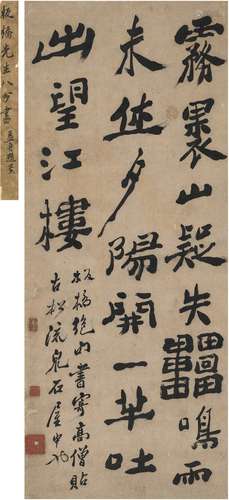 霧裹山疑失雷鳴雨
未休夕陽開一半吐
出望江樓
板橋絶句書寄高僧貼
古松流泉石屋中也
板橋先生八分書